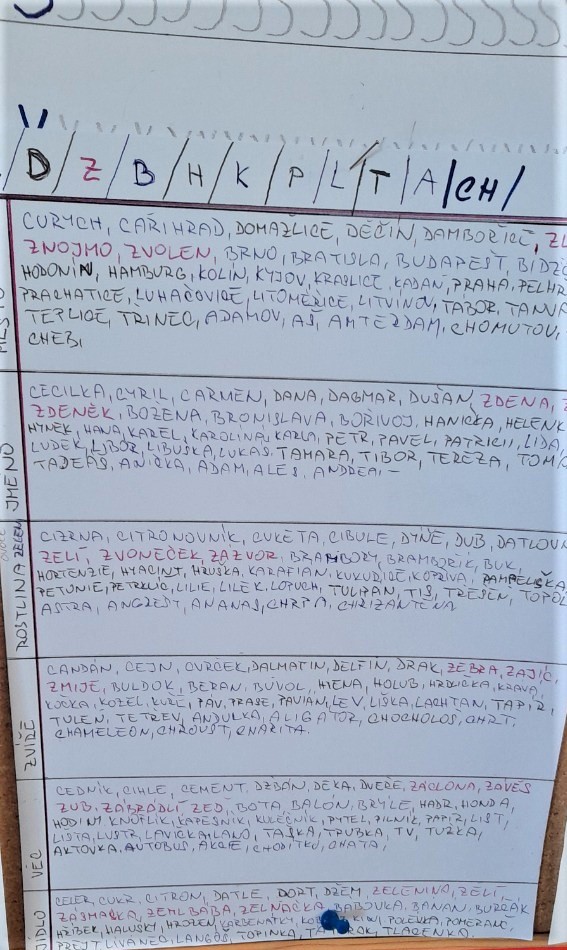 D / Z / B / H / K / P / L / T / A / CH /
MĚSTO
CURYCH, CAŘIHRAD, DOMAŽLICE, DĚČÍN, DAMBOŘICE, ZL
ZNOJMO, ZVOLEN, BRNO, BRATISLA, BUDAPEŠT, BIDŽO
HODONÍN, HAMBURG, KOLÍN, KYJOV, KRASLICE, KADAŇ, PRAHA, PELHŘ
PRACHATICE, LUHAČOVICE, LITOMĚŘICE, LITVÍNOV, TÁBOR, TANVA
TEPLICE, TŘINEC, ADAMOV, AŠ, AMTEZDAM, CHOMUTOV,
CHEB,
JMÉNO
CECILKA, CYRIL, CARMEN, DANA, DAGMAR, DUŠAN, ZDENA, Z
ZDENĚK, BOŽENA, BRONISLAVA, BOŘIVOJ, HANIČKA, HELENK
HYNEK, HANA, KAREL, KAROLÍNA, KARLA, PETR, PAVEL, PATRICII, LÍDA,
LUDĚK, LIBOR, LIBUŠKA, LUKÁŠ, TAMARA, TIBOR, TEREZA, TOM
TADEÁŠ, ANIČKA, ADAM, ALEŠ, ANDREA, –
ROSTLINA ZELEN
CIZRNA, CITRONOVNÍK, CUKETA, CIBULE, DÝNĚ, DUB, DATLOVN
ZELÍ, ZVONEČEK, ZÁZVOR, BRAMBORY, BRAMBOŘÍK, BUK,
HORTENZIE, HYACINT, HRUŠKA, KARAFIÁN, KUKUŘICE, KOPŘIVA, PAMPELIŠKA,
PETUNIE, PETRKLÍČ, LILIE, LILEK, LOPUCH, TULIPÁN, TIS, TŘEŠEŇ, TOPOL
ASTRA, ANGREŠT, ANANAS, CHRPA, CHRIZANTÉNA
ZVÍŘE
CANDÁN, CEJN, CVRČEK, DALMATIN, DELFÍN, DRAK, ZEBRA, ZAJÍC,
ZMIJE, BULDOK, BERAN, BŮVOL, HIENA, HOLUB, HRDLIČKA, KRÁVA,
KOČKA, KOZEL, KUŘE, PÁV, PRASE, PAVIÁN, LEV, LIŠKA, LACHTAN, TAPÍR,
TULEŇ, TETŘEV, ANDULKA, ALIGÁTOR, CHOCHOLOŠ, CHRT,
CHAMELEON, CHROUST, CHARITA.
VĚC
CEDNÍK, CIHLE, CEMENT, DŽBÁN, DEKA, DVEŘE, ZÁCLONA, ZÁVĚS
ZUB, ZÁBRADLÍ, ZEĎ, BOTA, BALÓN, BRÝLE, HADR, HONDA,
HODINY, KNOFLÍK, KAPESNÍK, KULEČNÍK, PYTEL, PILNÍK, PAPÍR, LIST,
LIŠTA, LUSTR, LAVIČKA, LANO, TAŠKA, TRUBKA, TV, TUŽKA,
AKTOVKA, AUTOBUS, AKCIE, CHODÍTKO, CHATA,
JÍDLO
CELER, CUKR, CITRON, DATLE, DORT, DŽEM, ZELENINA, ZELÍ,
ZÁSMAŽKA, ZEMLBÁBA, ZELŇAČKA, BÁBOVKA, BANÁN, BURČÁK
HŘÍBEK, HALUŠKY, HROZEN, KARBENÁTKY, KIWI, POLÉVKA, POMERANČ,
LÍVANEC, LANGOŠ, TOPINKA, TLAČENKA,